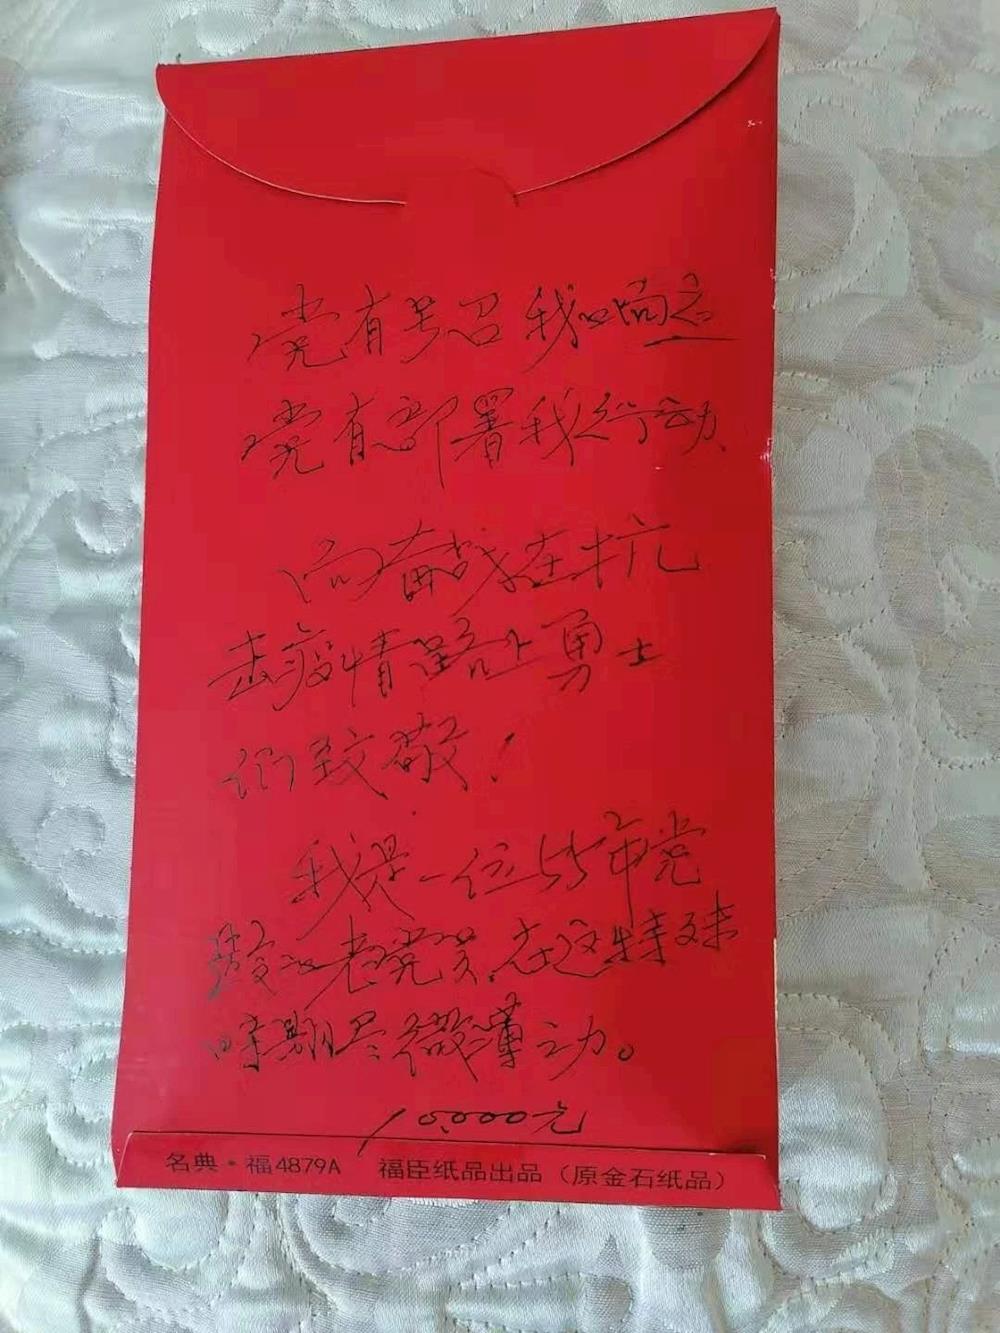 党有号召我响应
党有部署我行动
向奋战在抗
击疫情路上勇士
们致敬！
我是一位55年党
龄的老党员,在这特殊
时期尽微薄之力。
10000元
名典·福4879A 福臣纸品出品（原金石纸品）